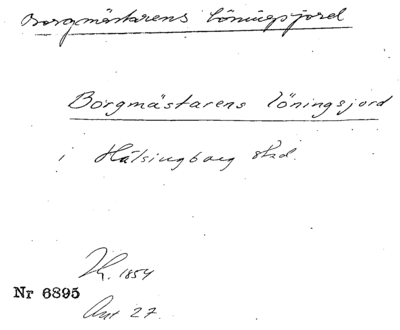 Borgmästarens löningsjord
Borgmästarens löningsjord
i Hälsingborg stad.
1854
Nr 6895
27.